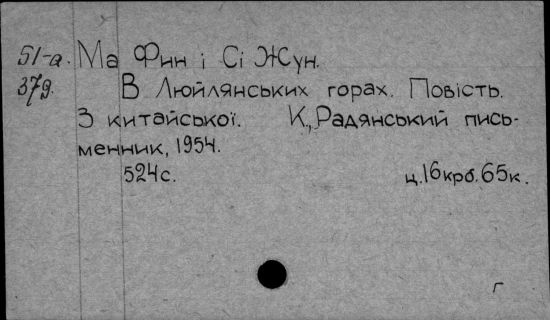 51-а. Ма Фин і Сі Жун.
379. В Люйлянських горах. Повість.
З китайської. К., Радянський пись-
менник, 1954.
524 с. ц. 16 крб. 65 к.
г